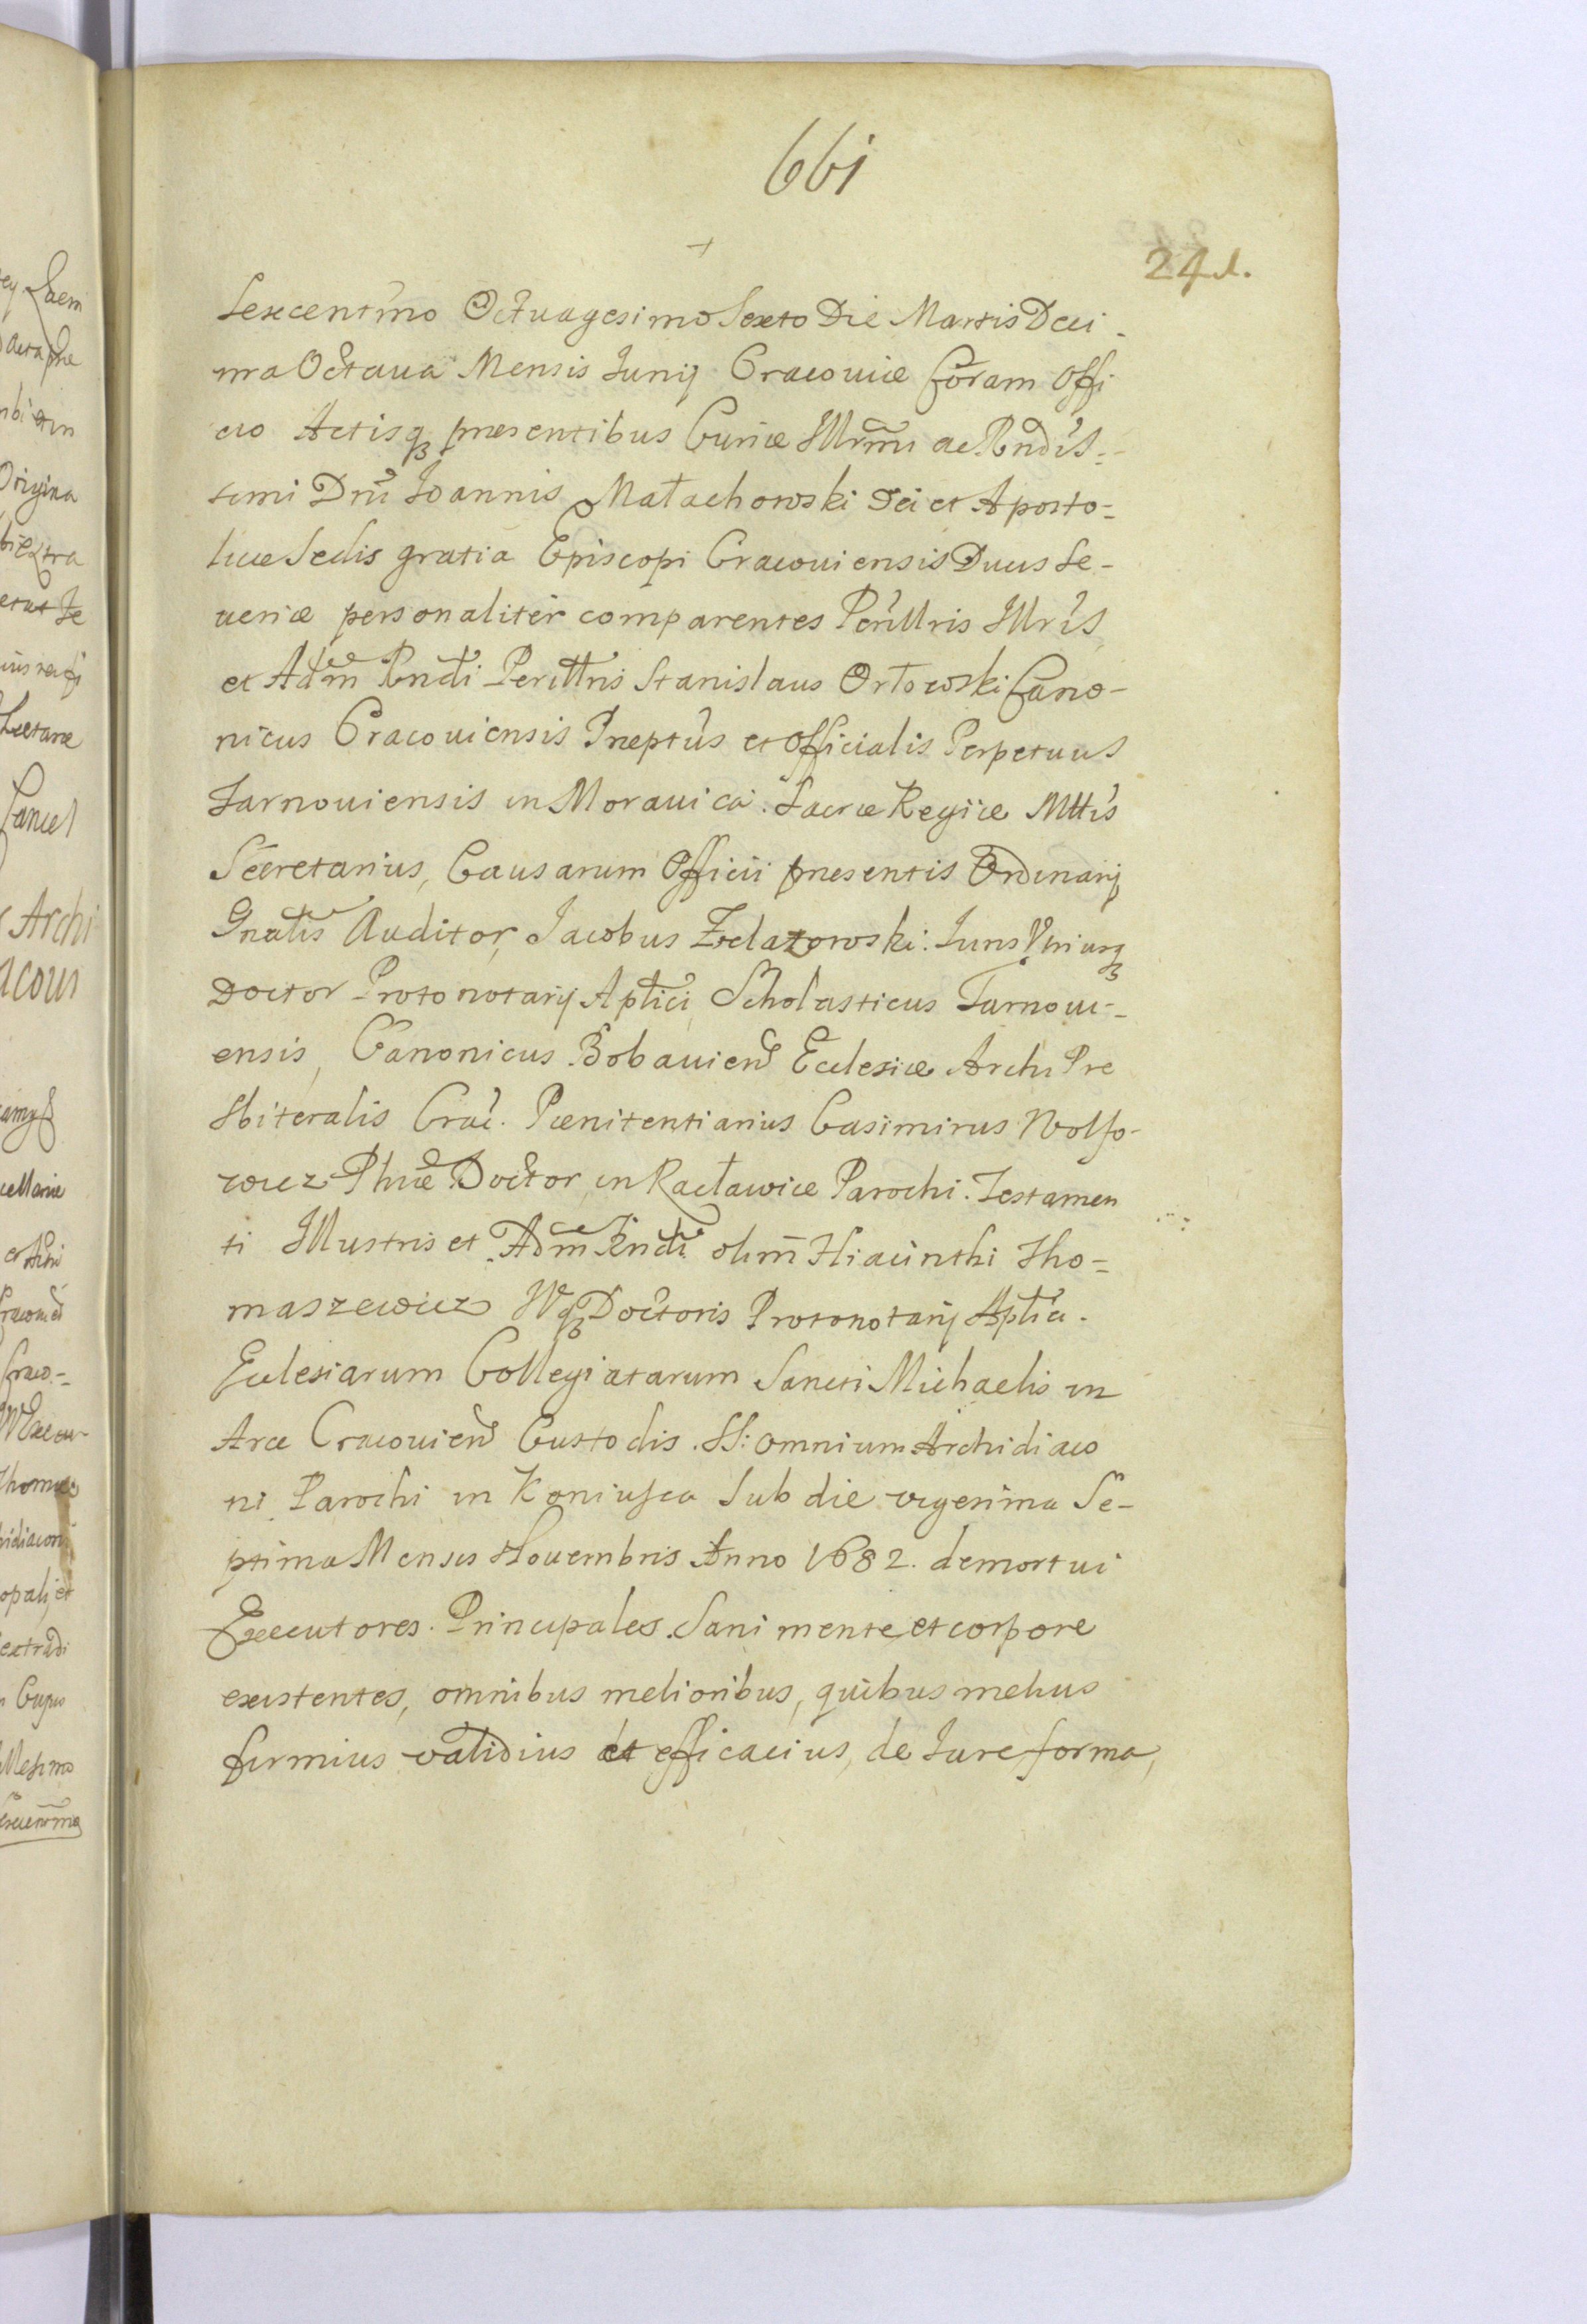 661
241.
Sexcentmo Octuagesimo Sexto Die Martis Deci-
ma Octaua Mensis Junij Cracouiæ Coram Offi
cio Actisq3 præsentibus Curiæ Illrmi ac Rndis-
simi Dni Joannis Małachowski Dei et Aposto=
licæ Sedis gratia Episcopi Cracouiensis Ducis Se-
ueriæ personaliter comparentes Perillris Illris
et Adm Rndi Perillris Stanislaus Orłowski Cano-
nicus Cracouiensis Præptus et Officialis Perpetuus
Tarnouiensis in Morauica. Sacræ Regiæ Mttis
Secretarius, Causarum Officii præsentis Ordinarij
Gnalis Auditor, Jacobus Żelazowski: Juris Vtriusq3
Doctor Protonotarij Aptici Scholasticus Tarnoui-
ensis, Canonicus Bobouien Ecclesiæ Archi Pre
sbiteralis Crac. Pœnitentiarius Casimirus Wolfo-
wicz Phiæ Doctor in Racławice Parochi. Testamen
ti Illustris et Adm Rndi olim Hiacinthi Tho=
maszewicz Vq3 Doctoris Protonotarij Aptici.
Ecclesiarum Collegiatarum Sancti Michaelis in
Arce Cracouien Custodis. SS: omnium Archidiaco
ni Parochi in Koniusza Sub die vigesima Se-
ptima Mensis Nouembris Anno 1682. demortui
Executores. Principales. Sani mente et corpore
existentes, omnibus melioribus, quibus melius
firmius validius et efficacius, de Jure forma,